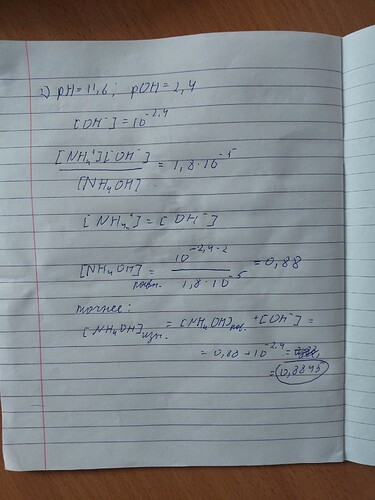 2) pH = 11,6; pOH = 2,4
[OH⁻] = 10^-2,4
[NH₄⁺][OH⁻] / [NH₄OH] = 1,8·10^-5
[NH₄⁺] = [OH⁻]
[NH₄OH]равн. = 10^-2,4·2 / 1,8·10^-5 = 0,88
точнее:
[NH₄OH]изн. = [NH₄OH]рав. + [OH⁻] =
= 0,88 + 10^-2,4 =
= 0,8845